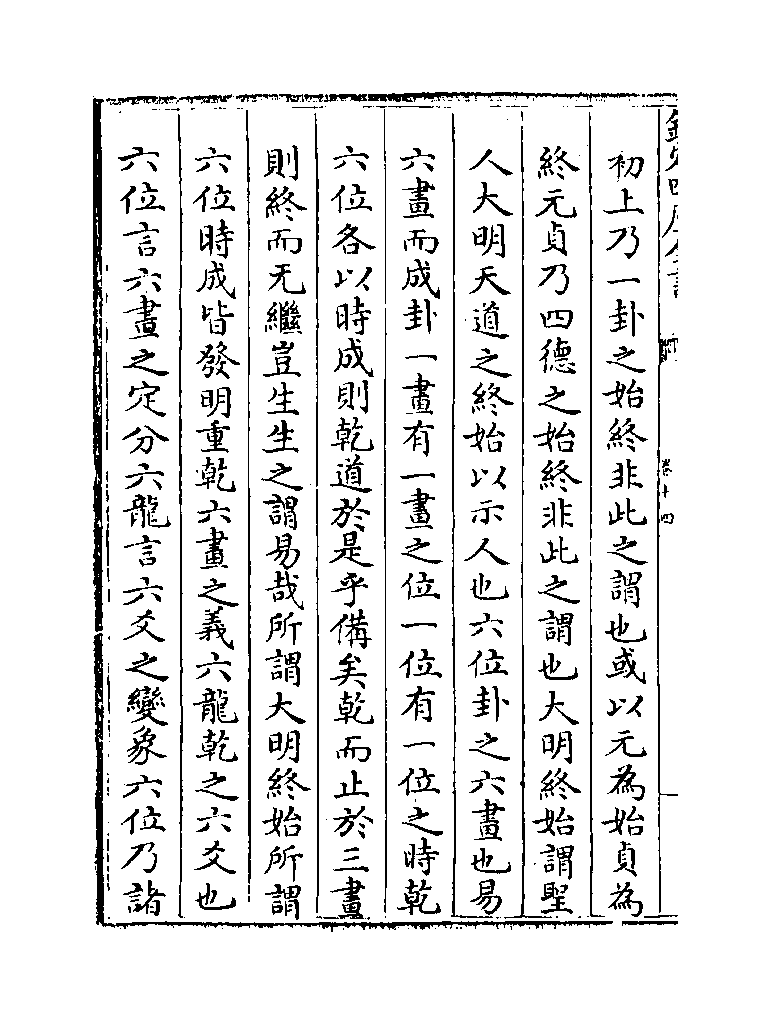 欽定四庫全書
卷十四
初上乃一卦之始終非此之謂也或以元為始貞為
終元貞乃四德之始終非此之謂也大明終始謂聖
人大明天道之終始以示人也六位卦之六畫也易
六畫而成卦一畫有一畫之位一位有一位之時乾
六位各以時成則乾道於是乎備矣乾而止於三畫
則終而无繼豈生生之謂易哉所謂大明終始所謂
六位時成皆發明重乾六畫之義六龍乾之六爻也
六位言六畫之定分六龍言六爻之變象六位乃諸